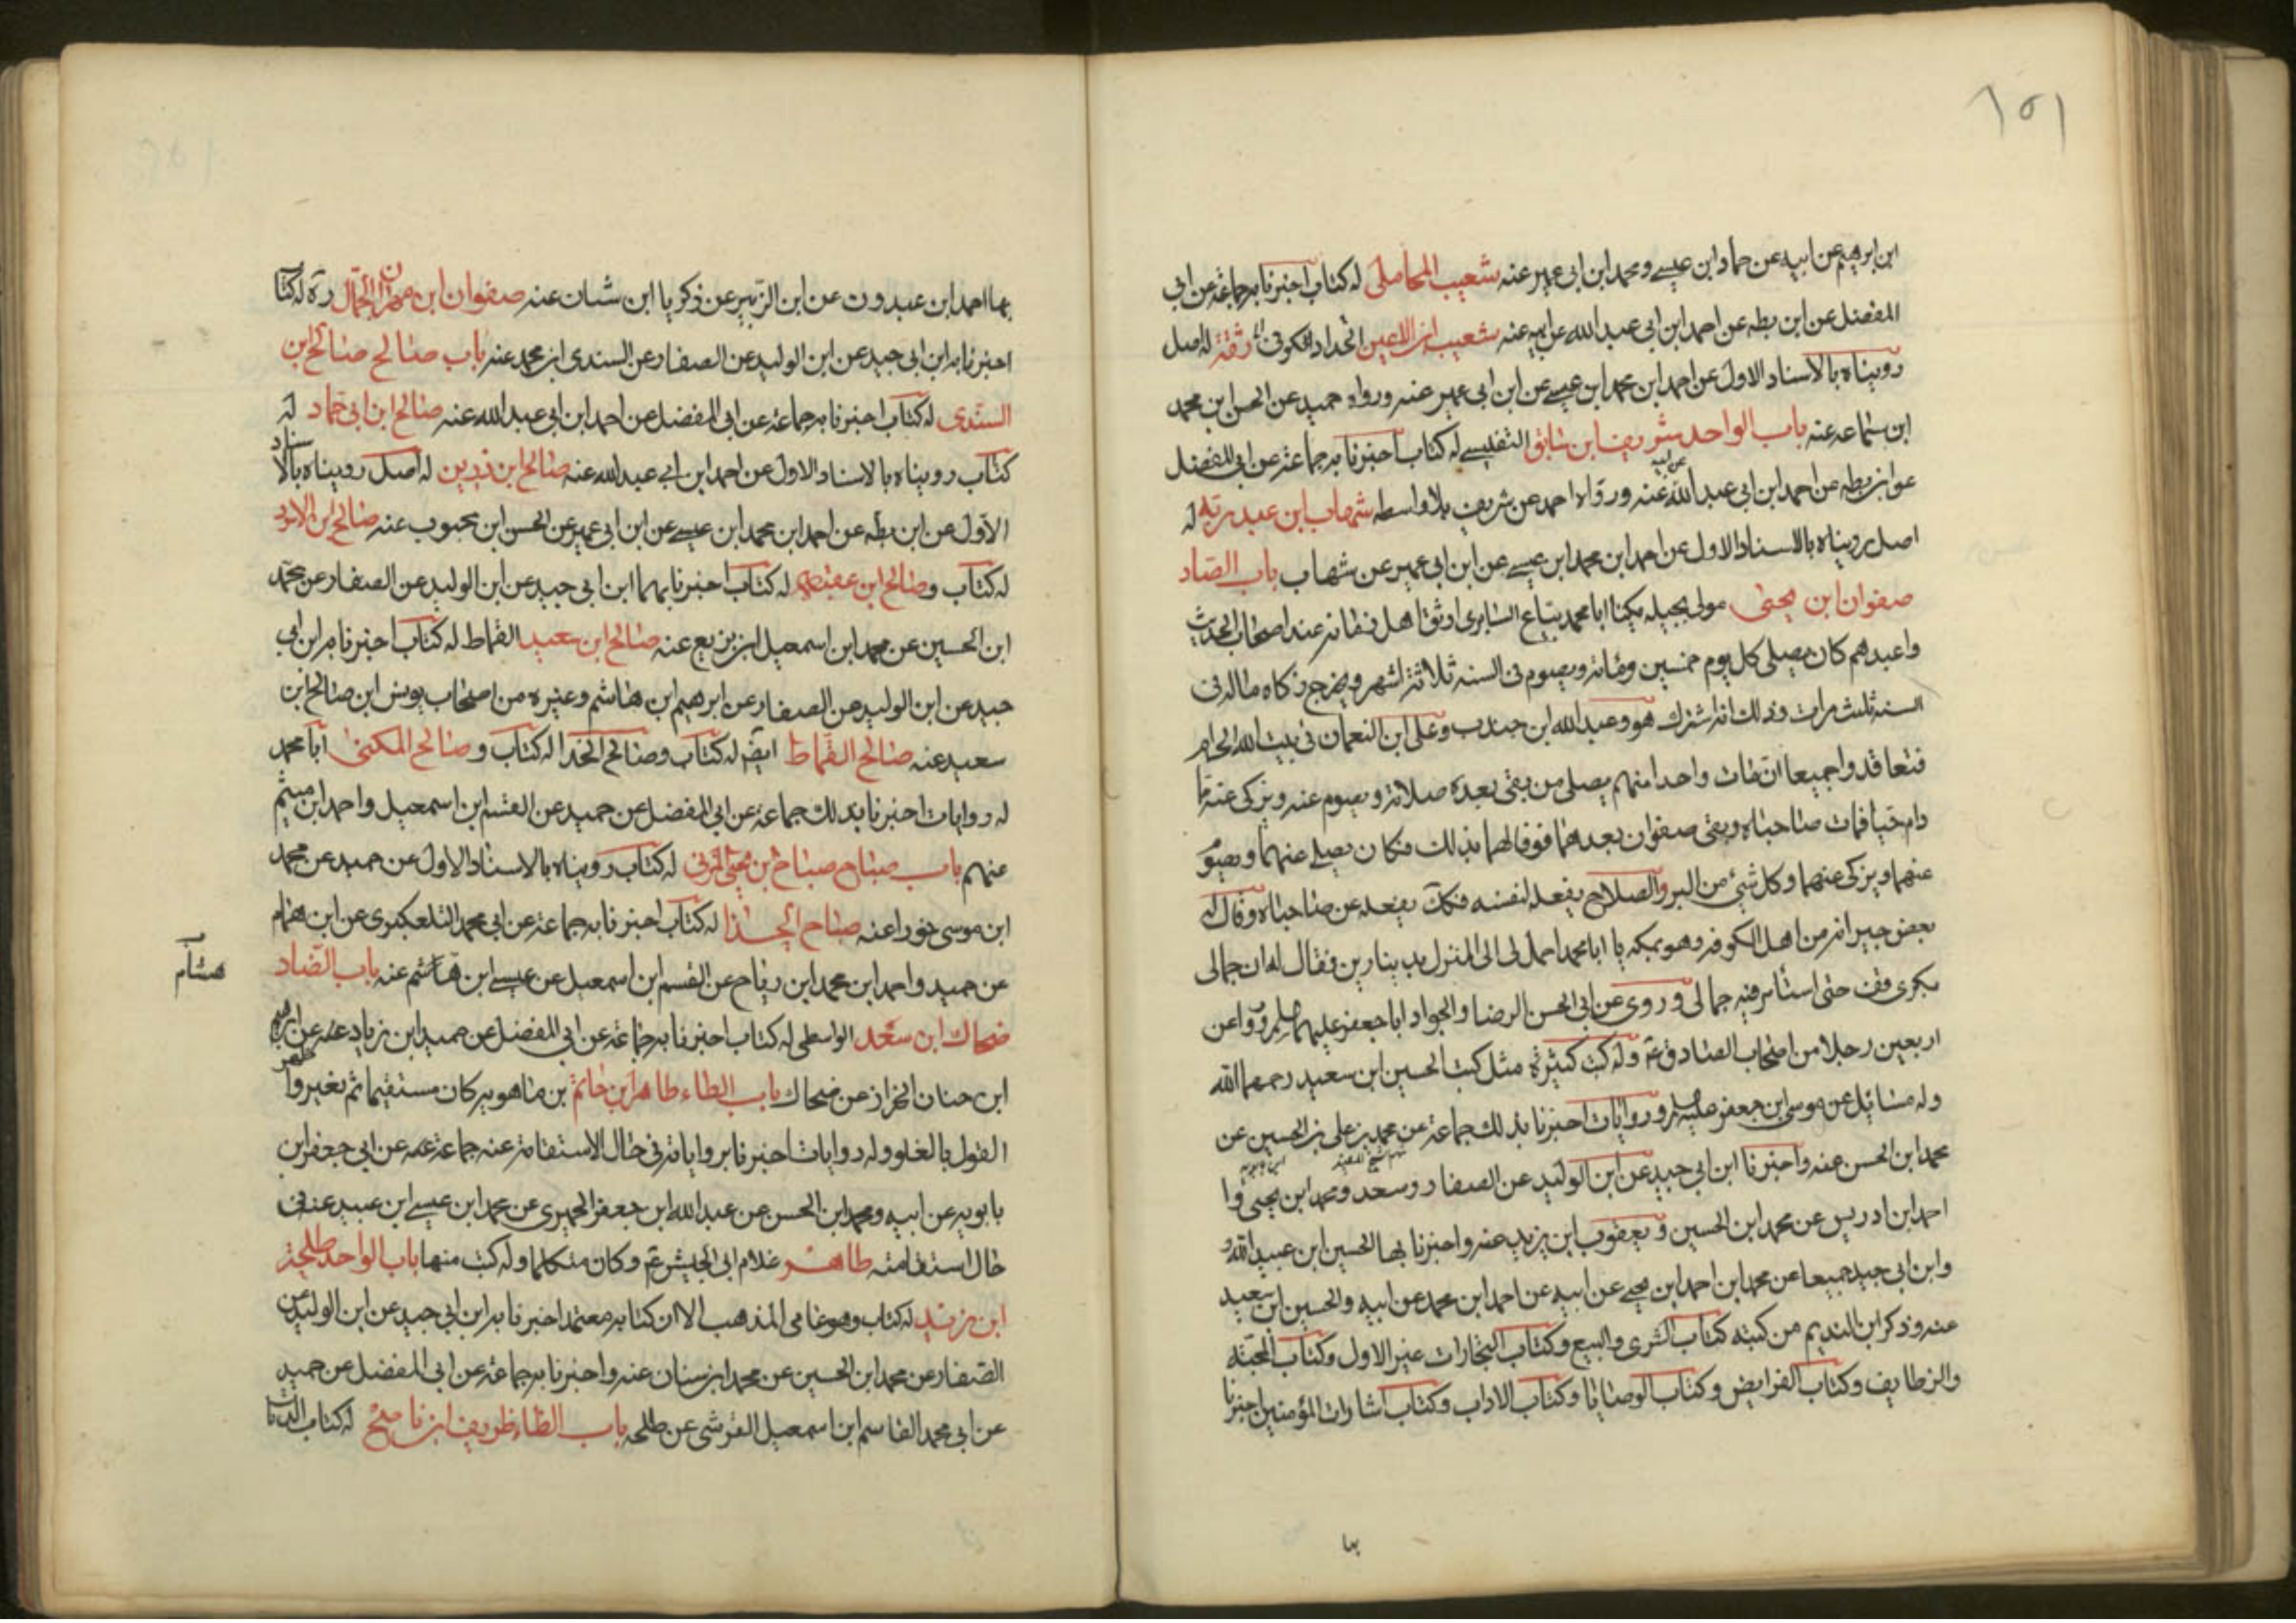 ١٥١
ابن ابرهيم عن ابيه عن حماد ابن عيسے ومحمد ابن ابى عمير عنه شعيب المحاملى له كتاب اخبرنا به جماعة عن ابى
المفضل عن ابن بطه عن احمد ابن ابى عبد الله عن ابيه عنه شعيب ابن اعين الحداد الكوفى ثقة له اصل
رويناه بالاسناد الاول عن احمد ابن محمد ابن عيسے عن ابن ابى عمير عنه ورواه حميد عن الحسن ابن محمد
ابن سماعه عنه باب الواحد شريف ابن سابق التفليسے له كتاب اخبرنا به جماعة عن ابى المفضل
عن ابن بطه عن احمد ابن ابى عبد الله عن ابيه عنه ورواه احمد عن شريف بلا واسطه شهاب ابن عبد ربه له
اصل رويناه بالاسناد الاول عن احمد ابن محمد ابن عيسے عن ابن ابى عمير عن شهاب باب الصاد
صفوان ابن يحيى مولى بجيله يكنا ابا محمد بياع السابرى اوثق اهل زمانه عند اصحاب الحديث
واعبدهم كان يصلى كل يوم خمسين ومائة ويصوم فى السنه ثلاثة اشهر ويخرج زكاه ماله فى
السنه ثلث مرات وذلك انه اشترك هو وعبد الله ابن جندب وعلى ابن النعمان فى بيت الله الحرام
فتعاقدوا جميعا ان مات واحدا منهم يصلى من بقى بعده صلاته ويصوم عنه ويزكى عنه ما
دام حيا فمات صاحباه وبقى صفوان بعدهما فوفا لهما بذلك فكان يصلے عنهما ويصوم
عنهما ويزكى عنهما وكل شئ من البر والصلاح يفعله لنفسه فكك يفعله عن صاحباه وقال له
بعض جيرانه من اهل الكوفه وهو بمكه يا ابا محمد احمل لى الى المنزل بدينارين فقال له ان جمالى
بكرى فقف حتى استأمر فيه جمالى وروى عن ابى الحسن الرضا والجواد ابا جعفر عليهما وروا عن
اربعين رجلا من اصحاب الصادق ع وله كتب كثيرة مثل كتب الحسين ابن سعيد رحمهما الله
وله مسائل عن موسى ابن جعفر وروايات اخبرنا بذلك جماعة عن محمد بن على بن الحسين عن
محمد ابن الحسن عنه واخبرنا ابن ابى جيد عن ابن الوليد عن الصفار وسعد ومحمد ابن يحيى وا
احمد ابن ادريس عن محمد ابن الحسين و يعقوب ابن يزيد عنه واخبرنا بها الحسين ابن عبيد الله
وابن ابى جيد جميعا عن محمد ابن احمد ابن يحيے عن ابيه عن احمد ابن محمد عن ابيه والحسين ابن سعيد
عنه وذكر ابن النديم من كتبه كتاب الشرى والبيع وكتاب التجارات غير الاول وكتاب المحبة
والزطايف وكتاب الفرايض وكتاب الوصايا وكتاب الاداب وكتاب اشارات المؤمنين اخبرنا
بها
بها احمد ابن عبدون عن ابن الزبير عن زكريا ابن شيبان عنه صفوان ابن مهران الجمال ره له كتاب
اخبرنا به ابن ابى جيد عن ابن الوليد عن الصفار عن السندى ابن محمد عنه باب صالح صالح ابن
السندى له كتاب اخبرنا به جماعة عن ابى المفضل عن احمد ابن ابى عبد الله عنه صالح ابن ابى حماد له
كتاب رويناه بالاسناد الاول عن احمد ابن ابے عبد الله عنه صالح ابن رزين له اصل رويناه بالاسناد
الاول عن ابن بطه عن احمد ابن محمد ابن عيسے عن ابن ابى عمير عن الحسن ابن محبوب عنه صالح ابن الاسود
له كتاب وصالح ابن عقبة له كتاب اخبرنا بهما ابن ابى جيد عن ابن الوليد عن الصفار عن محمد
ابن الحسين عن محمد ابن اسمعيل ابن بزيع عنه صالح ابن سعيد القماط له كتاب اخبرنا به ابن ابى
جيد عن ابن الوليد عن الصفار عن ابرهيم ابن هاشم وغيره من اصحاب يونس ابن صالح ابن
سعيد عنه صالح القماط ايضا له كتاب وصالح الحذا له كتاب و صالح المكنى ابا محمد
له روايات اخبرنا بذلك جماعة عن ابى المفضل عن حميد عن القسم ابن اسمعيل واحمد ابن ميثم
عنهم باب صباح صباح بن يحيى المزنى له كتاب رويناه بالاسناد الاول عن حميد عن محمد
ابن موسى خوراء عنه صباح الحذا له كتاب اخبرنا به جماعة عن ابى محمد التلعكبرى عن ابن همام
عن حميد واحمد ابن محمد ابن رباح عن القسم ابن اسمعيل عن عيسے ابن هاشم عنه باب الضاد
هشام
ضحاك ابن سعد الواسطى له كتاب اخبرنا به جماعة عن ابى المفضل عن حميد ابن زياد عنه عن ابرهيم
ابن حنان الخراز عن ضحاك باب الطاء طاهر ابن حاتم بن ماهويه كان مستقيما ثم تغير واظهر
القول بالغلو وله روايات اخبرنا برواياته فى حال الاستقامة عنه جماعة عنه عن ابى جعفر ابن
بابويه عن ابيه ومحمد ابن الحسن عن عبد الله ابن جعفر الحميرى عن محمد ابن عيسے ابن عبيد عنه فى
حال استقامته طاهر غلام ابى الجيش ع وكان متكلما وله كتب منها باب الواحد طلحة
ابن زيد له كتاب وهو عامى المذهب الا ان كتابه معتمد اخبرنا به ابن ابى جيد عن ابن الوليد عن
الصفار عن محمد ابن الحسين عن محمد ابن سنان عنه واخبرنا به جماعة عن ابى المفضل عن حميد
عن ابى محمد القاسم ابن اسمعيل القرشى عن طلحه باب الظاء ظريف ابن ناصح له كتاب الديات